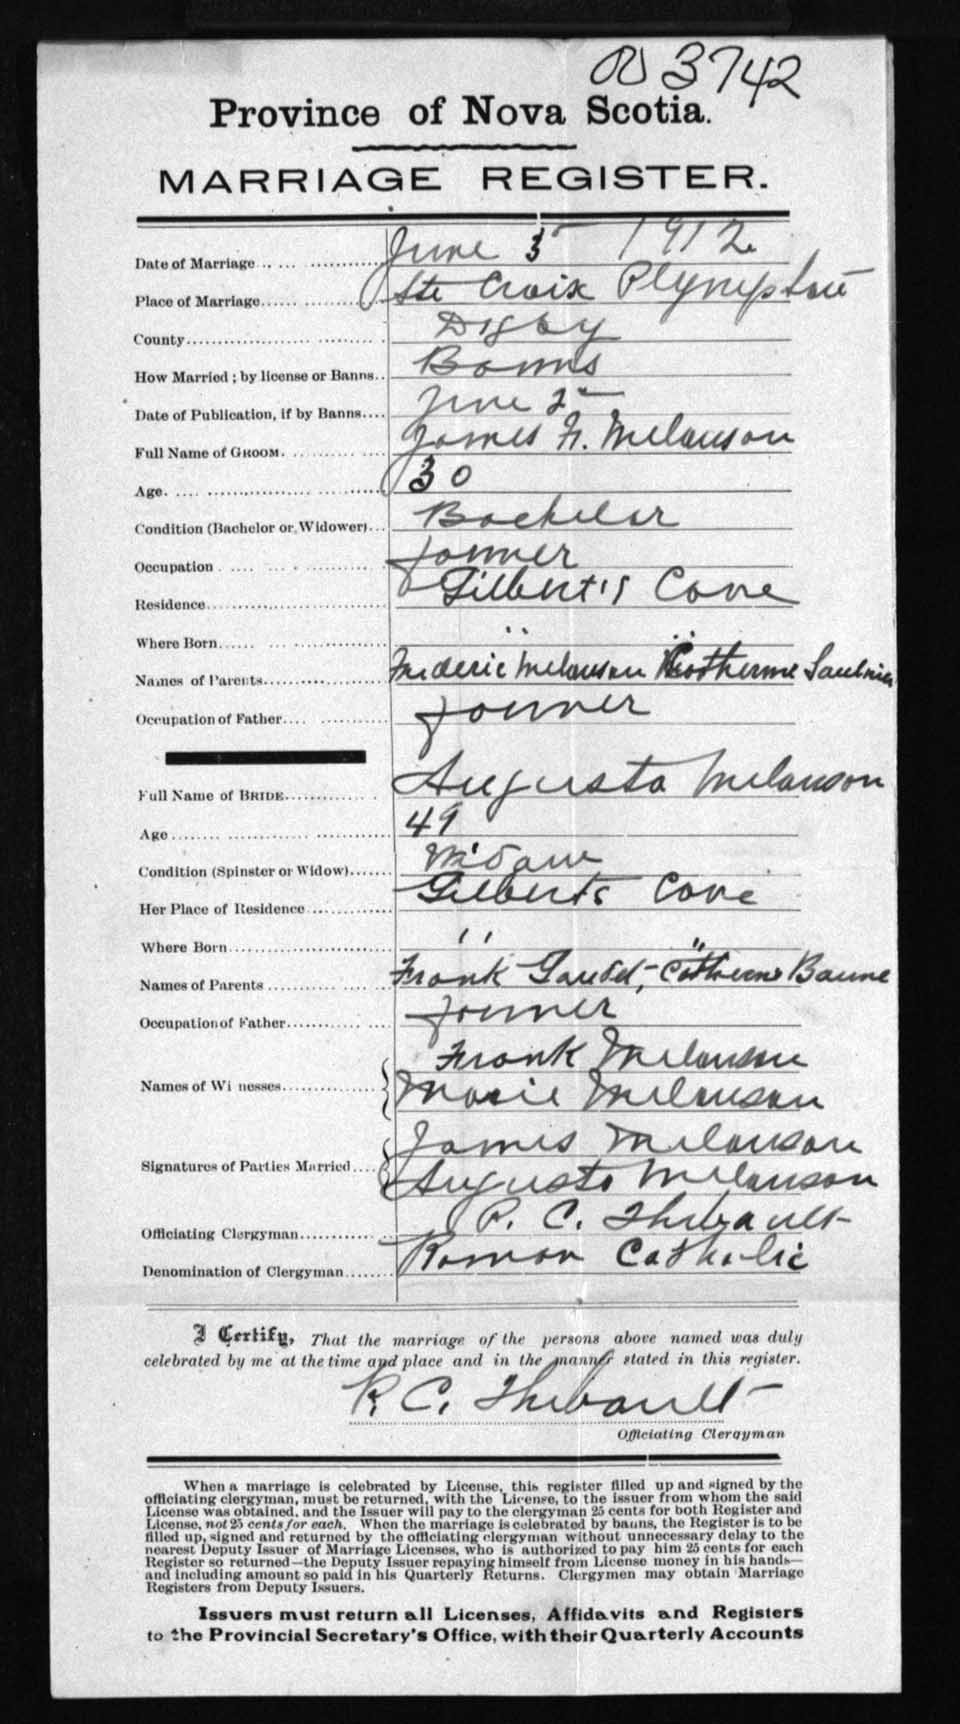 3742
Province of Nova Scotia.
MARRIAGE REGISTER.
Date of Marriage June 3 1912
Place of Marriage Ste Croix Plympton
County Digby
How Married ; by license or Banns Banns
Date of Publication, if by Banns June 2
Full Name of GROOM James Melanson
Age 30
Condition (Bachelor or Widower) Bachelor
Occupation Farmer
Residence Gilbert's Cove
Where Born " "
Names of Parents Frederic Melanson Catherine Saulnier
Occupation of Father Farmer
Full Name of BRIDE Augusta Melanson
Age 49
Condition (Spinster or Widow) Widow
Her Place of Residence Gilberts Cove
Where Born " "
Names of Parents Frank Catherine
Occupation of Father Farmer
Names of Wi nesses Frank Melanson
Marie Melanson
Signatures of Parties Married James Melanson
Augusta Melanson
Officiating Clergyman P. C. Thibault
Denomination of Clergyman Roman Catholic
I Certify, That the marriage of the persons above named was duly
celebrated by me at the time and place and in the manner stated in this register.
P. C. Thibault
Officiating Clergyman
When a marriage is celebrated by License, this register filled up and signed by the
officiating clergyman, must be returned, with the License, to the issuer from whom the said
License was obtained, and the Issuer will pay to the clergyman 25 cents for both Register and
License, not 25 cents for each. When the marriage is celebrated by banns, the Register is to be
filled up, signed and returned by the officiating clergyman without unnecessary delay to the
nearest Deputy Issuer of Marriage Licenses, who is authorized to pay him 25 cents for each
Register so returned—the Deputy Issuer repaying himself from License money in his hands—
and including amount so paid in his Quarterly Returns. Clergymen may obtain Marriage
Registers from Deputy Issuers.
Issuers must return all Licenses, Affidavits and Registers
to the Provincial Secretary's Office, with their Quarterly Accounts